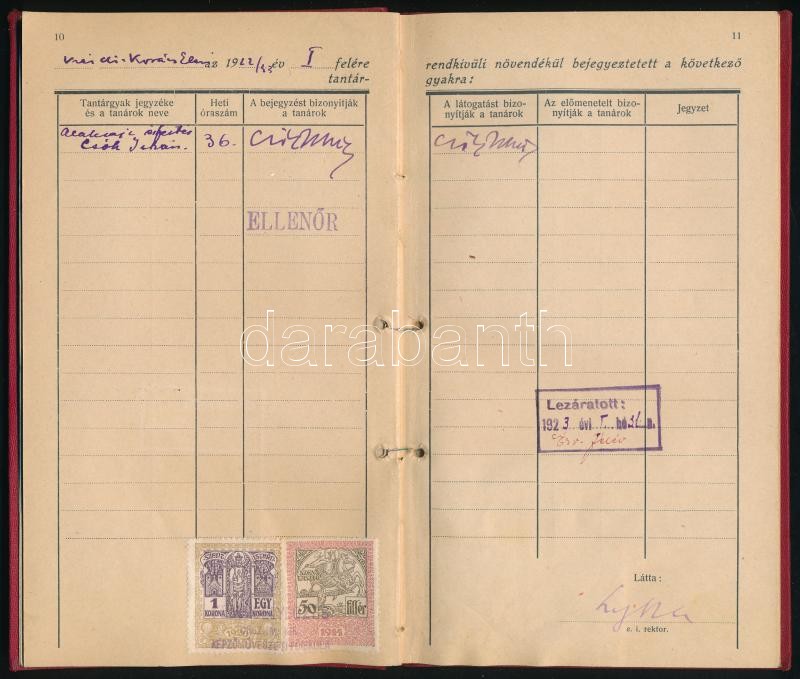 10
az 1922/23 év I felére
tantár-
Tantárgyak jegyzéke és a tanárok neve
Heti óraszám
A bejegyzést bizonyítják a tanárok
Csók István.
36.
ELLENŐR
SZENT ISTVÁN
1 KORONA
EGY KORONA
50 fillér
1914
KÉPZŐMŰVÉSZ
11
rendkívüli növendékül bejegyeztetett a következő
gyakra:
A látogatást bizonyítják a tanárok
Az előmenetelt bizonyítják a tanárok
Jegyzet
Lezáratott:
1923. évi I. hó 31. n.
félév
Látta:
e. i. rektor.
darabanth